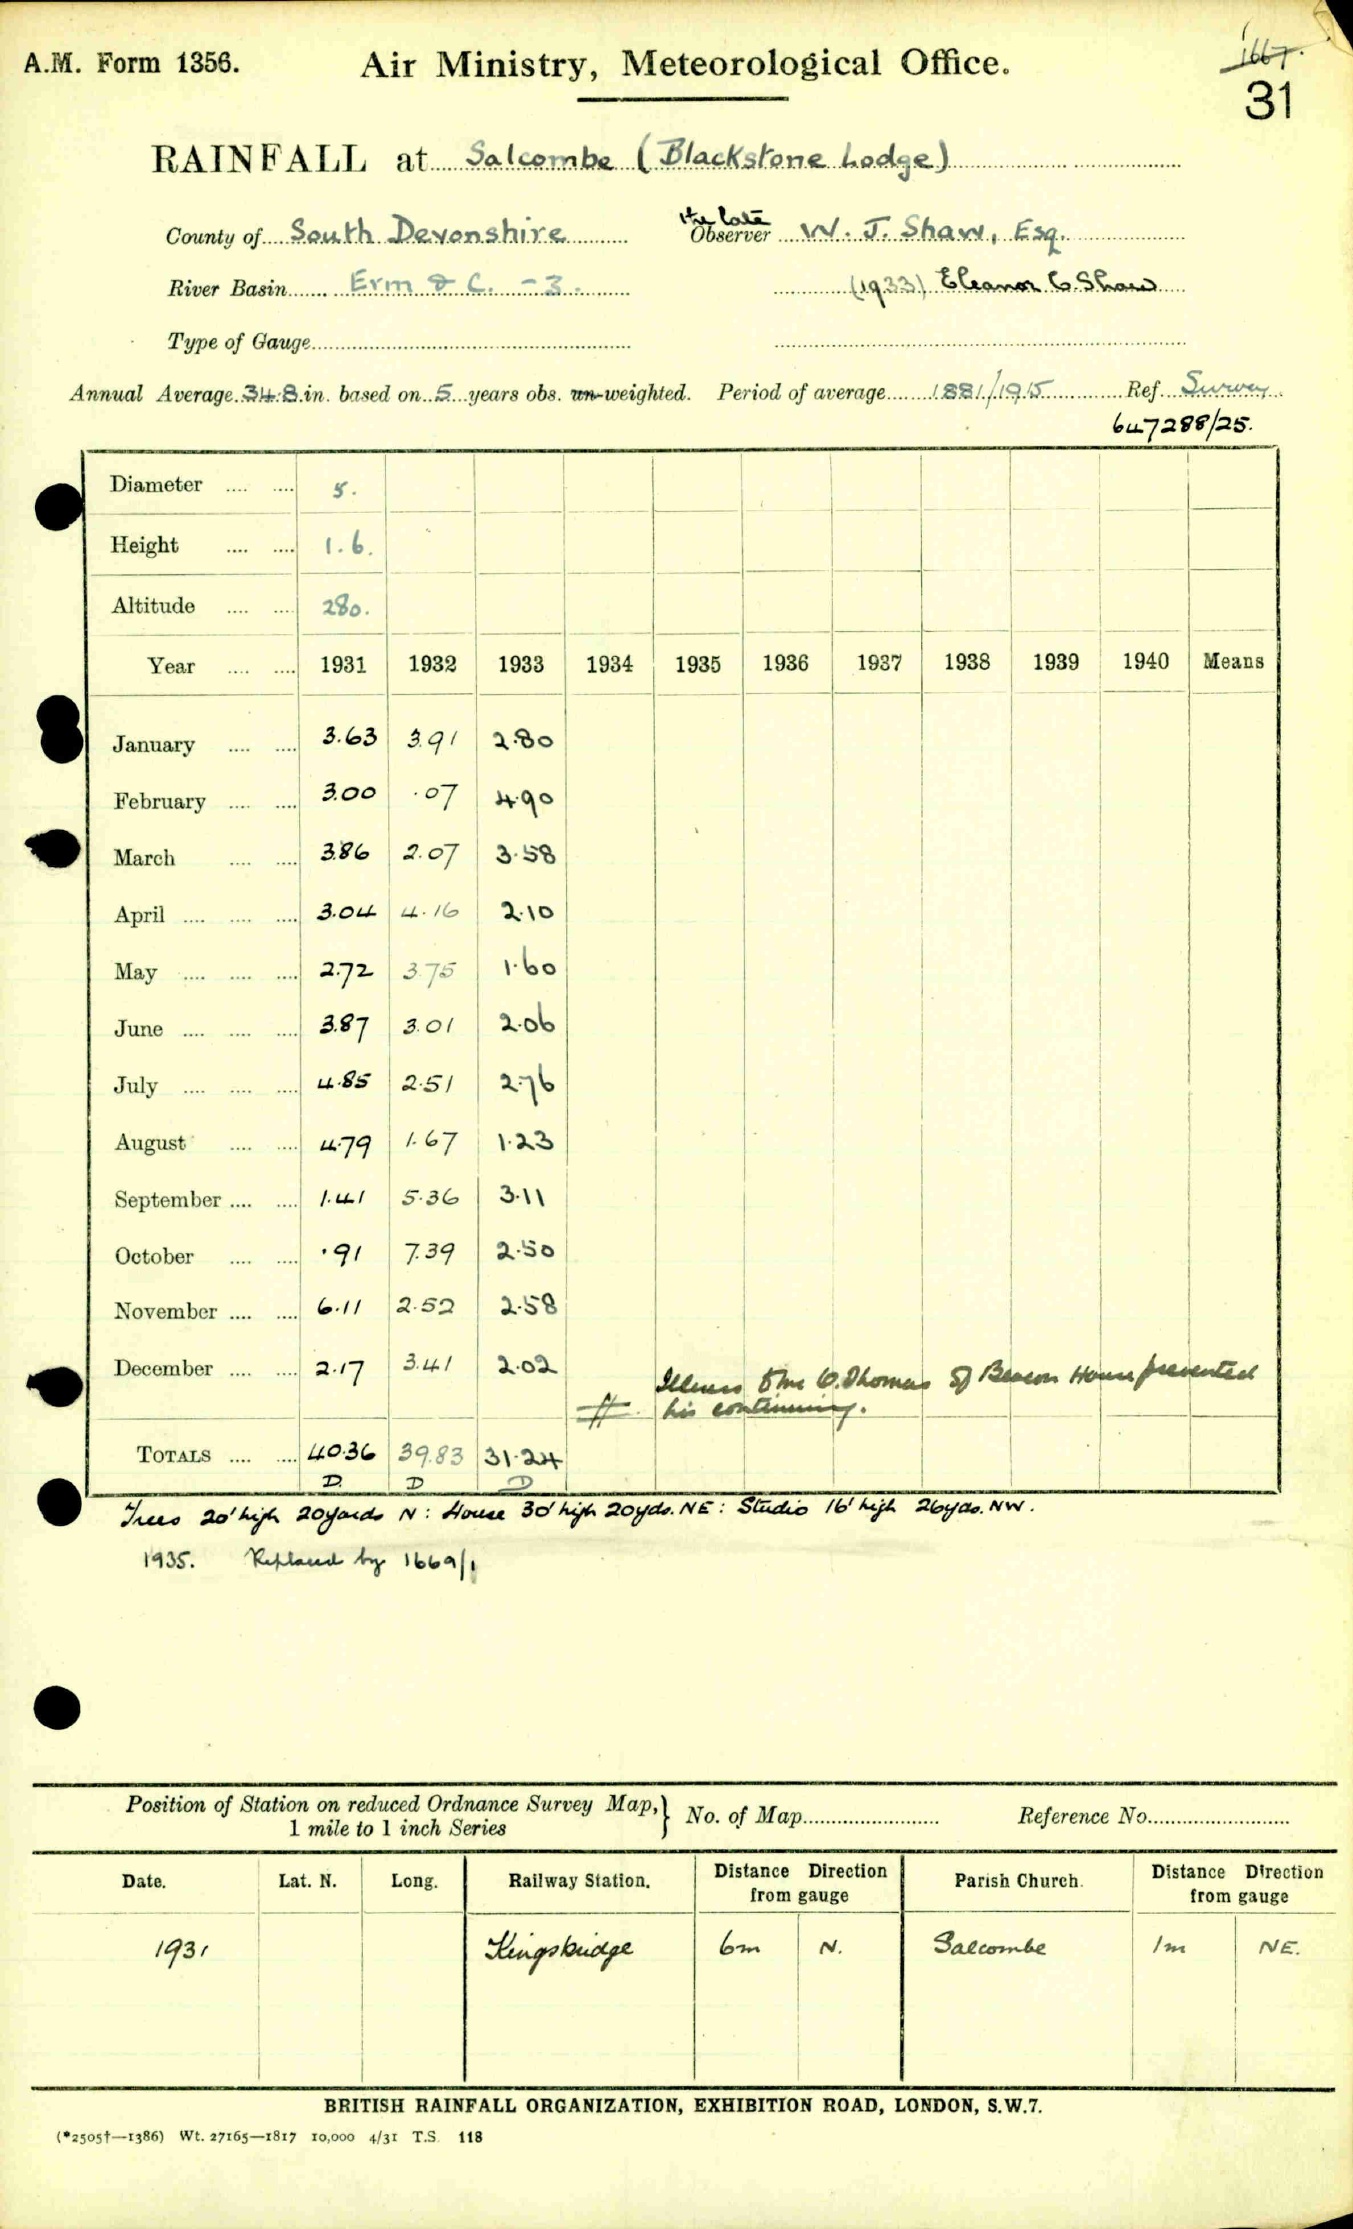 A.M. Form 1356. Air Ministry, Meteorological Office. 1667.
31
RAINFALL at Salcombe (Blackstone Lodge)
County of South Devonshire the late Observer W. J. Shaw, Esq.
River Basin Erm & C. - 3. (1933) Eleanor C. Shaw
Type of Gauge
Annual Average 34.8 in. based on 5 years obs. un-weighted. Period of average 1881/1915 Ref. Survey
647288/25.
Diameter .... .... 5.
Height .... .... 1.6.
Altitude .... .... 280.
Year .... .... 1931 1932 1933 1934 1935 1936 1937 1938 1939 1940 Means
January .... .... 3.63 3.91 2.80
February .... .... 3.00 .07 4.90
March .... .... 3.86 2.07 3.58
April .... .... .... 3.04 4.16 2.10
May .... .... .... 2.72 3.75 1.60
June .... .... .... 3.87 3.01 2.06
July .... .... .... 4.85 2.51 2.76
August .... .... 4.79 1.67 1.23
September .... .... 1.41 5.36 3.11
October .... .... .91 7.39 2.50
November .... .... 6.11 2.52 2.58
December .... .... 2.17 3.41 2.02 Illness of Mr Thomas of Beacon House prevented
his continuing.
TOTALS .... .... 40.36 39.83 31.24
D. D D
Trees 20' high 20 yards N : House 30' high 20 yds. NE : Studio 16' high 26 yds. NW.
1935. Replaced by 1669/1
Position of Station on reduced Ordnance Survey Map, } No. of Map Reference No.
1 mile to 1 inch Series
Date. Lat. N. Long. Railway Station. Distance Direction from gauge Parish Church. Distance Direction from gauge
1931 Kingsbridge 6m N. Salcombe 1m NE.
BRITISH RAINFALL ORGANIZATION, EXHIBITION ROAD, LONDON, S.W.7.
(*2505†—1386) Wt. 27165—1817 10,000 4/31 T.S. 118